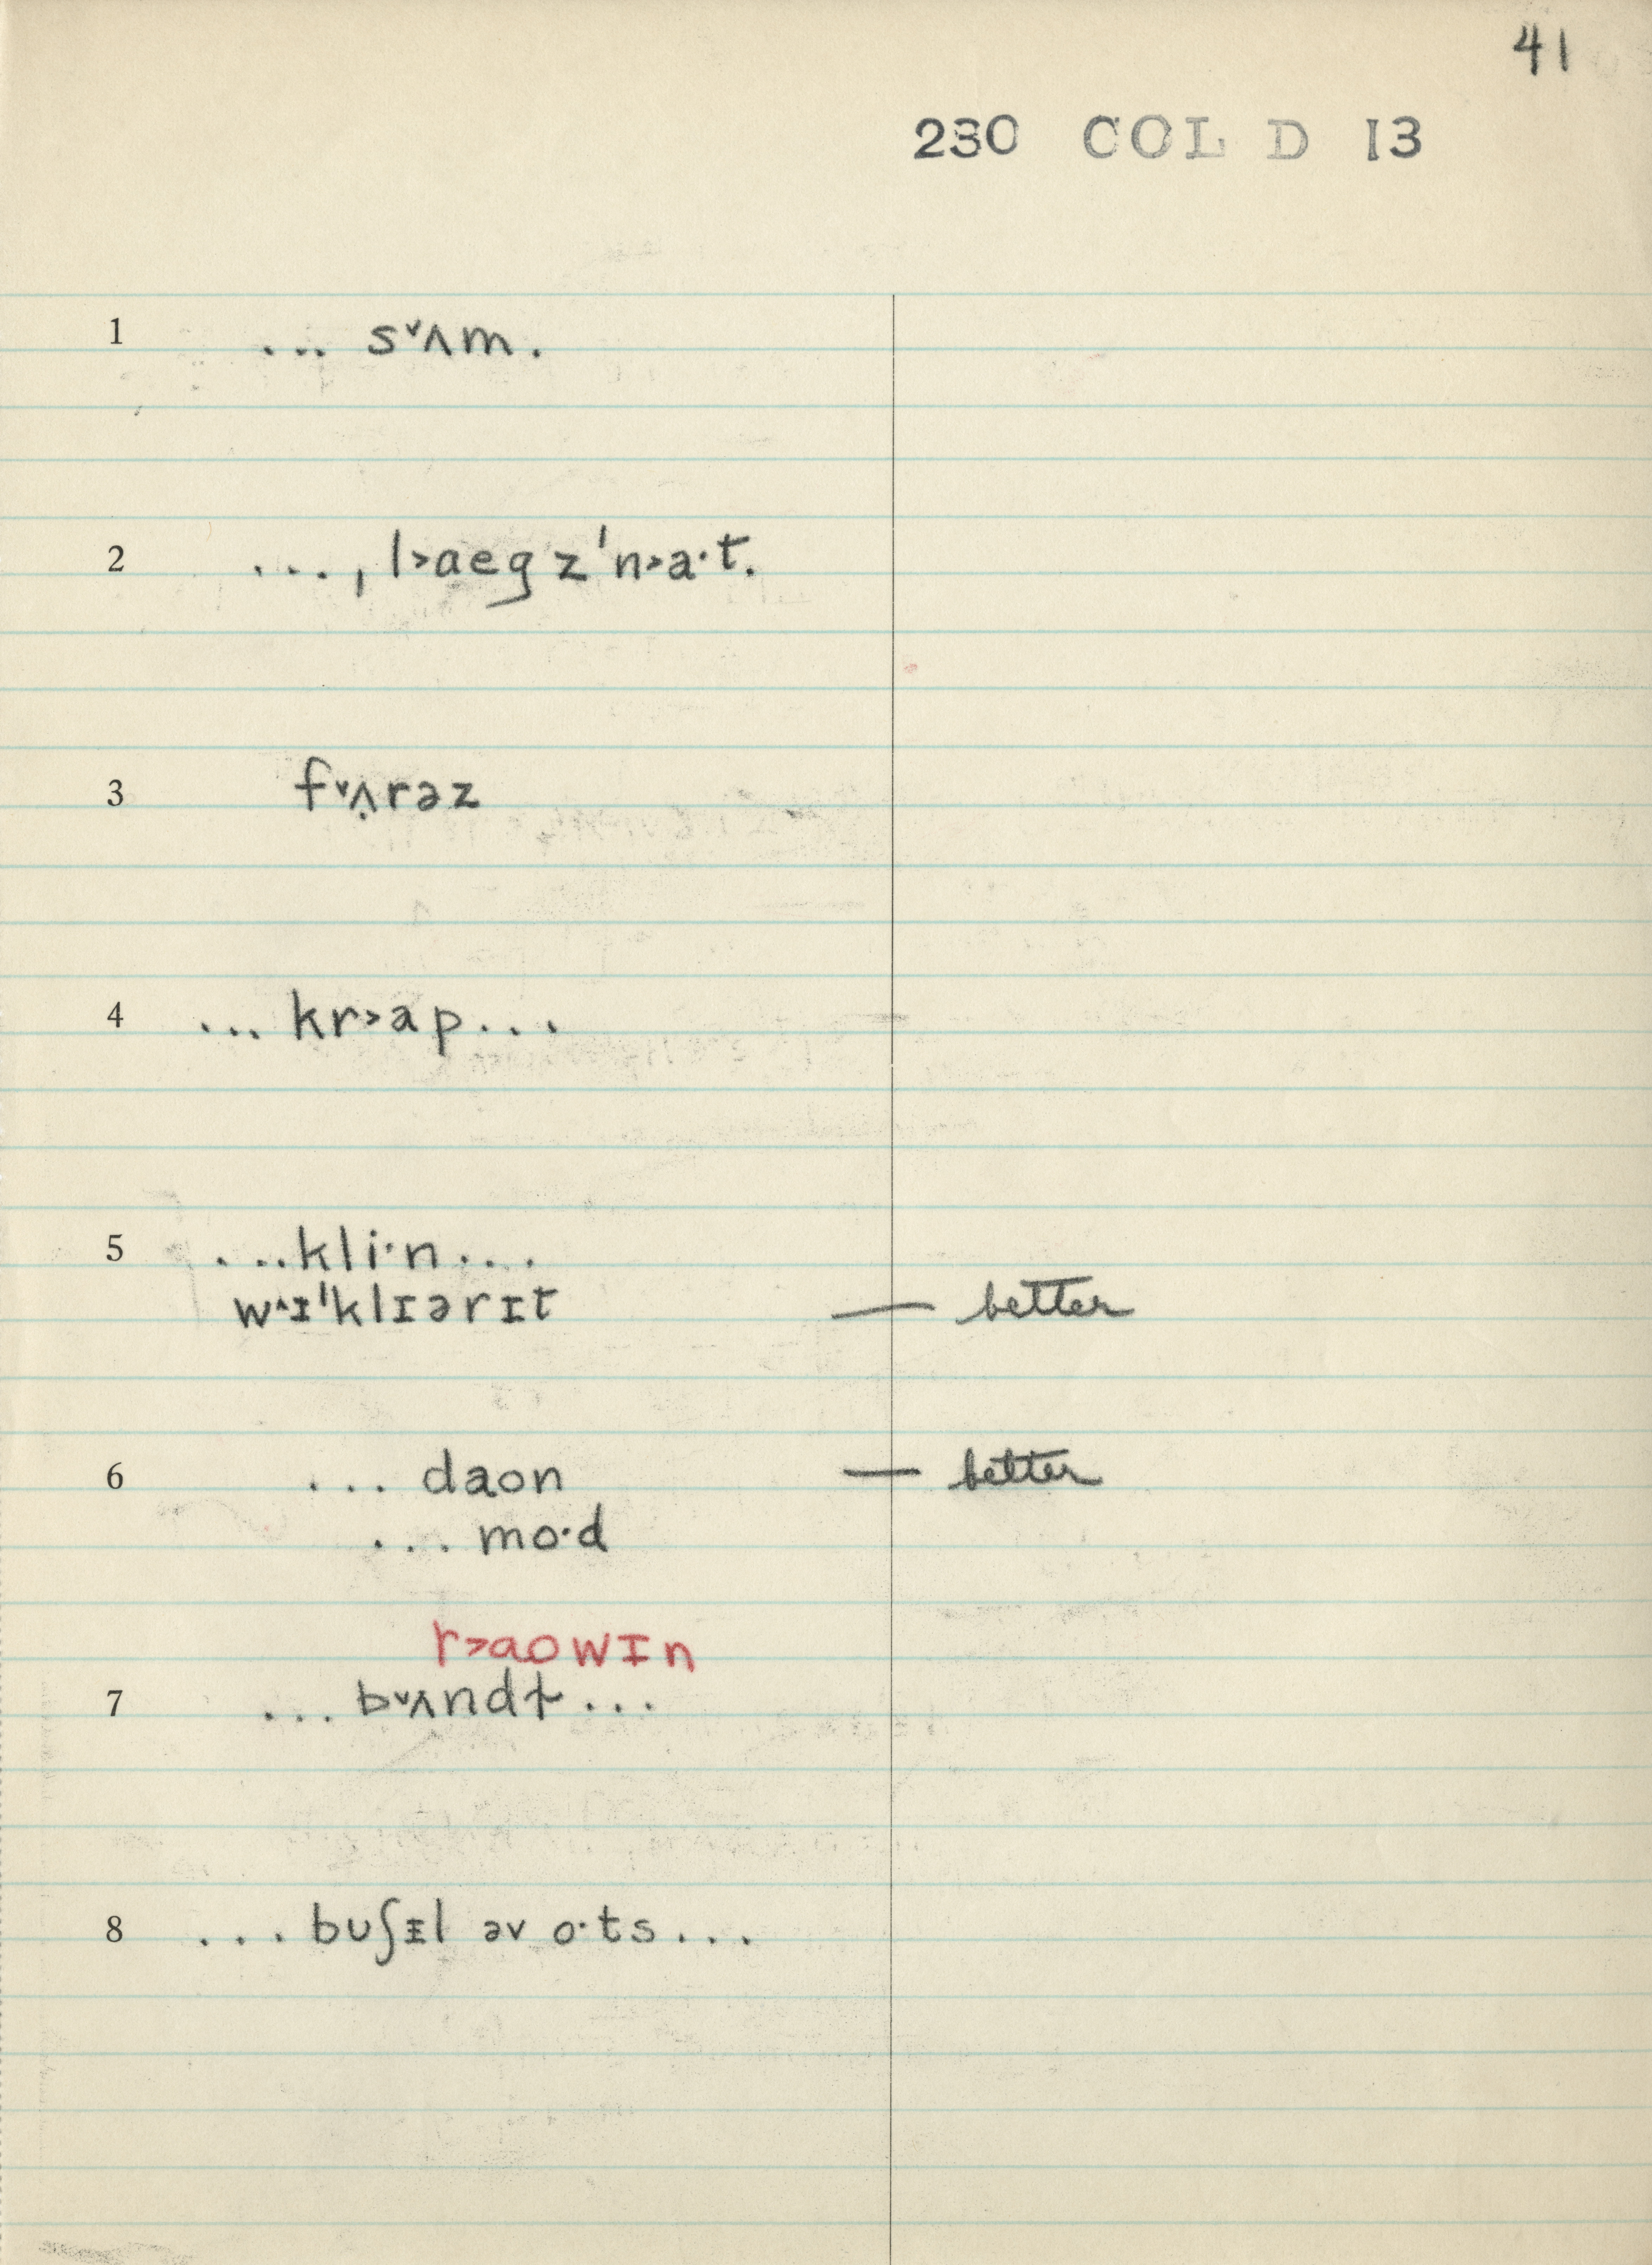 41
230 COL D 13
1 ... s˅ʌm.
2 ..., l˃aegz'n˃a·t.
3 f˅ʌ̣rəz
4 ... kr˃ap...
5 ...kli·n...
w˄ɪ'klɪərɪt — better
6 ... daon — better
... mo·d
r˃aowɪn
7 ... b˅ʌndɫ...
8 ... buʃᵻl əv o·ts...